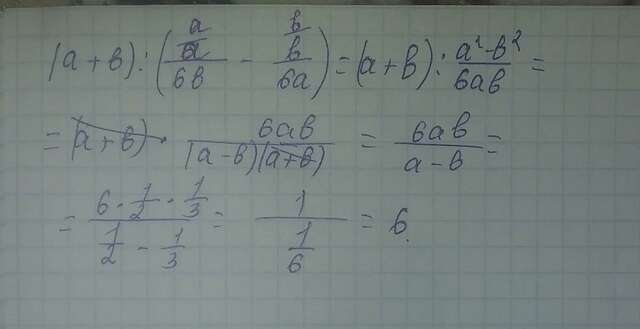 (a + b) : (a/6b - b/6a) = (a + b) : a² - b²/6ab =
= (a + b) · 6ab/(a - b)(a + b) = 6ab/a - b =
= 6 · 1/2 · 1/3 / 1/2 - 1/3 = 1 / 1/6 = 6.